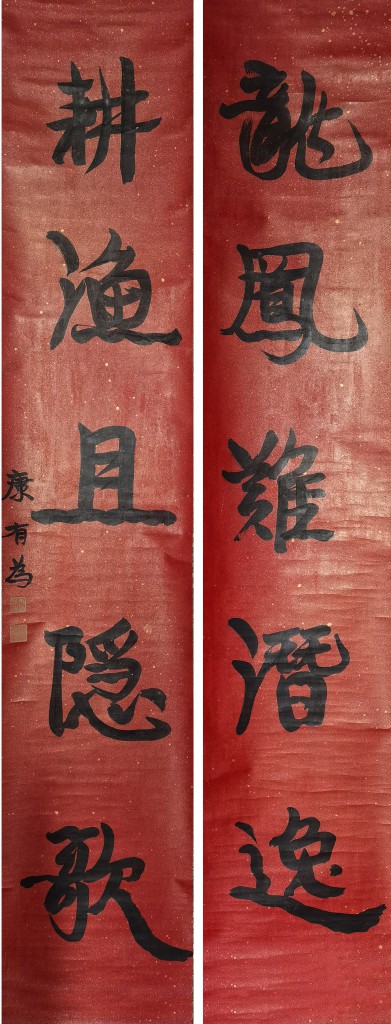 龍鳳難潛逸
耕漁且隱歌
康有為